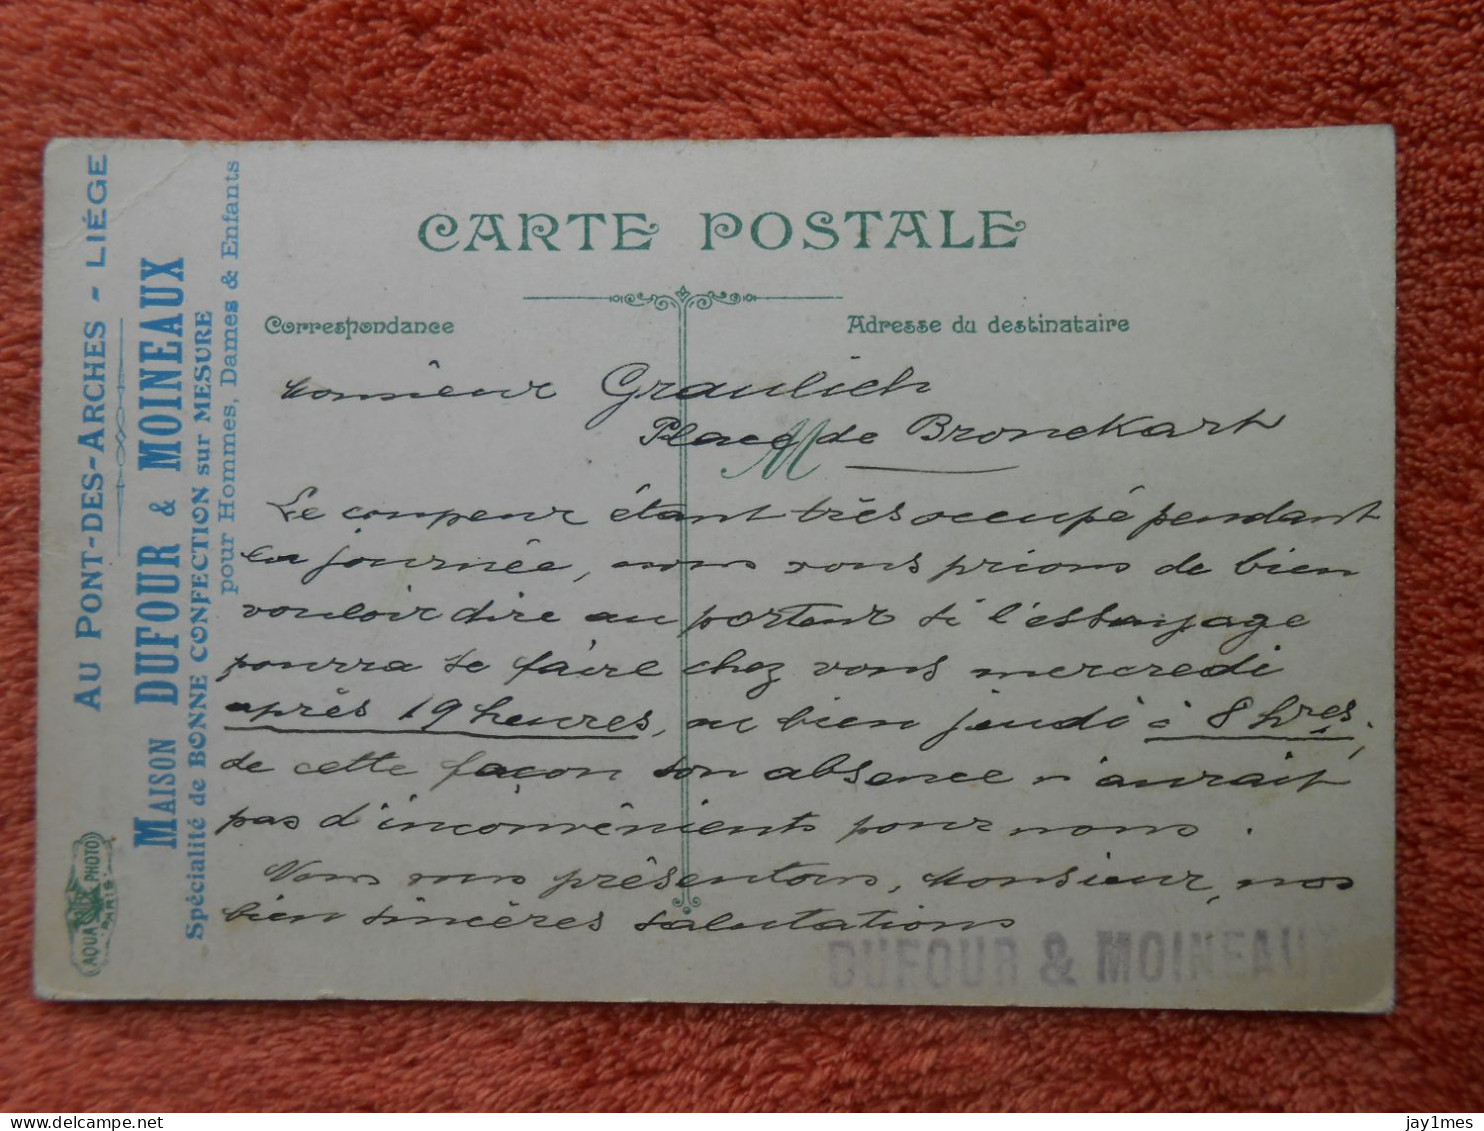 AU PONT-DES-ARCHES - LIÉGE
MAISON DUFOUR & MOINEAUX
Spécialité de BONNE CONFECTION sur MESURE
pour Hommes, Dames & Enfants
AQUA PHOTO
PARIS
CARTE POSTALE
Correspondance
Adresse du destinataire
Monsieur Graulich
Place de Bronckart
M
Le coupeur étant très occupé pendant
la journée, nous vous prions de bien
vouloir dire au porteur si l'essayage
pourra se faire chez vous mercredi
après 19 heures, ou bien jeudi à 8 hres,
de cette façon son absence n'aurait
pas d'inconvénients pour nous.
Nous vous présentons, Monsieur, nos
bien sincères salutations
DUFOUR & MOINEAUX
jay1mes